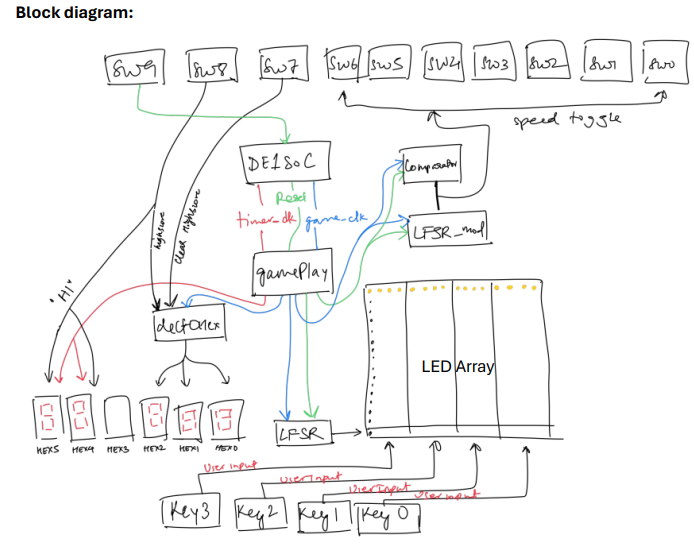 Block diagram:
SW9 SW8 SW7 SW6 SW5 SW4 SW3 SW2 SW1 SW0
speed toggle
DE1SoC
Comparator
Reset
timer_clk game_clk
highscore
clear Highscore
LFSR_mod
gamePlay
"HI"
LED Array
LFSR
HEX5 HEX4 HEX3 HEX2 HEX1 HEX0
User input
User Input
User Input
User input
Key3 Key2 Key1 Key0